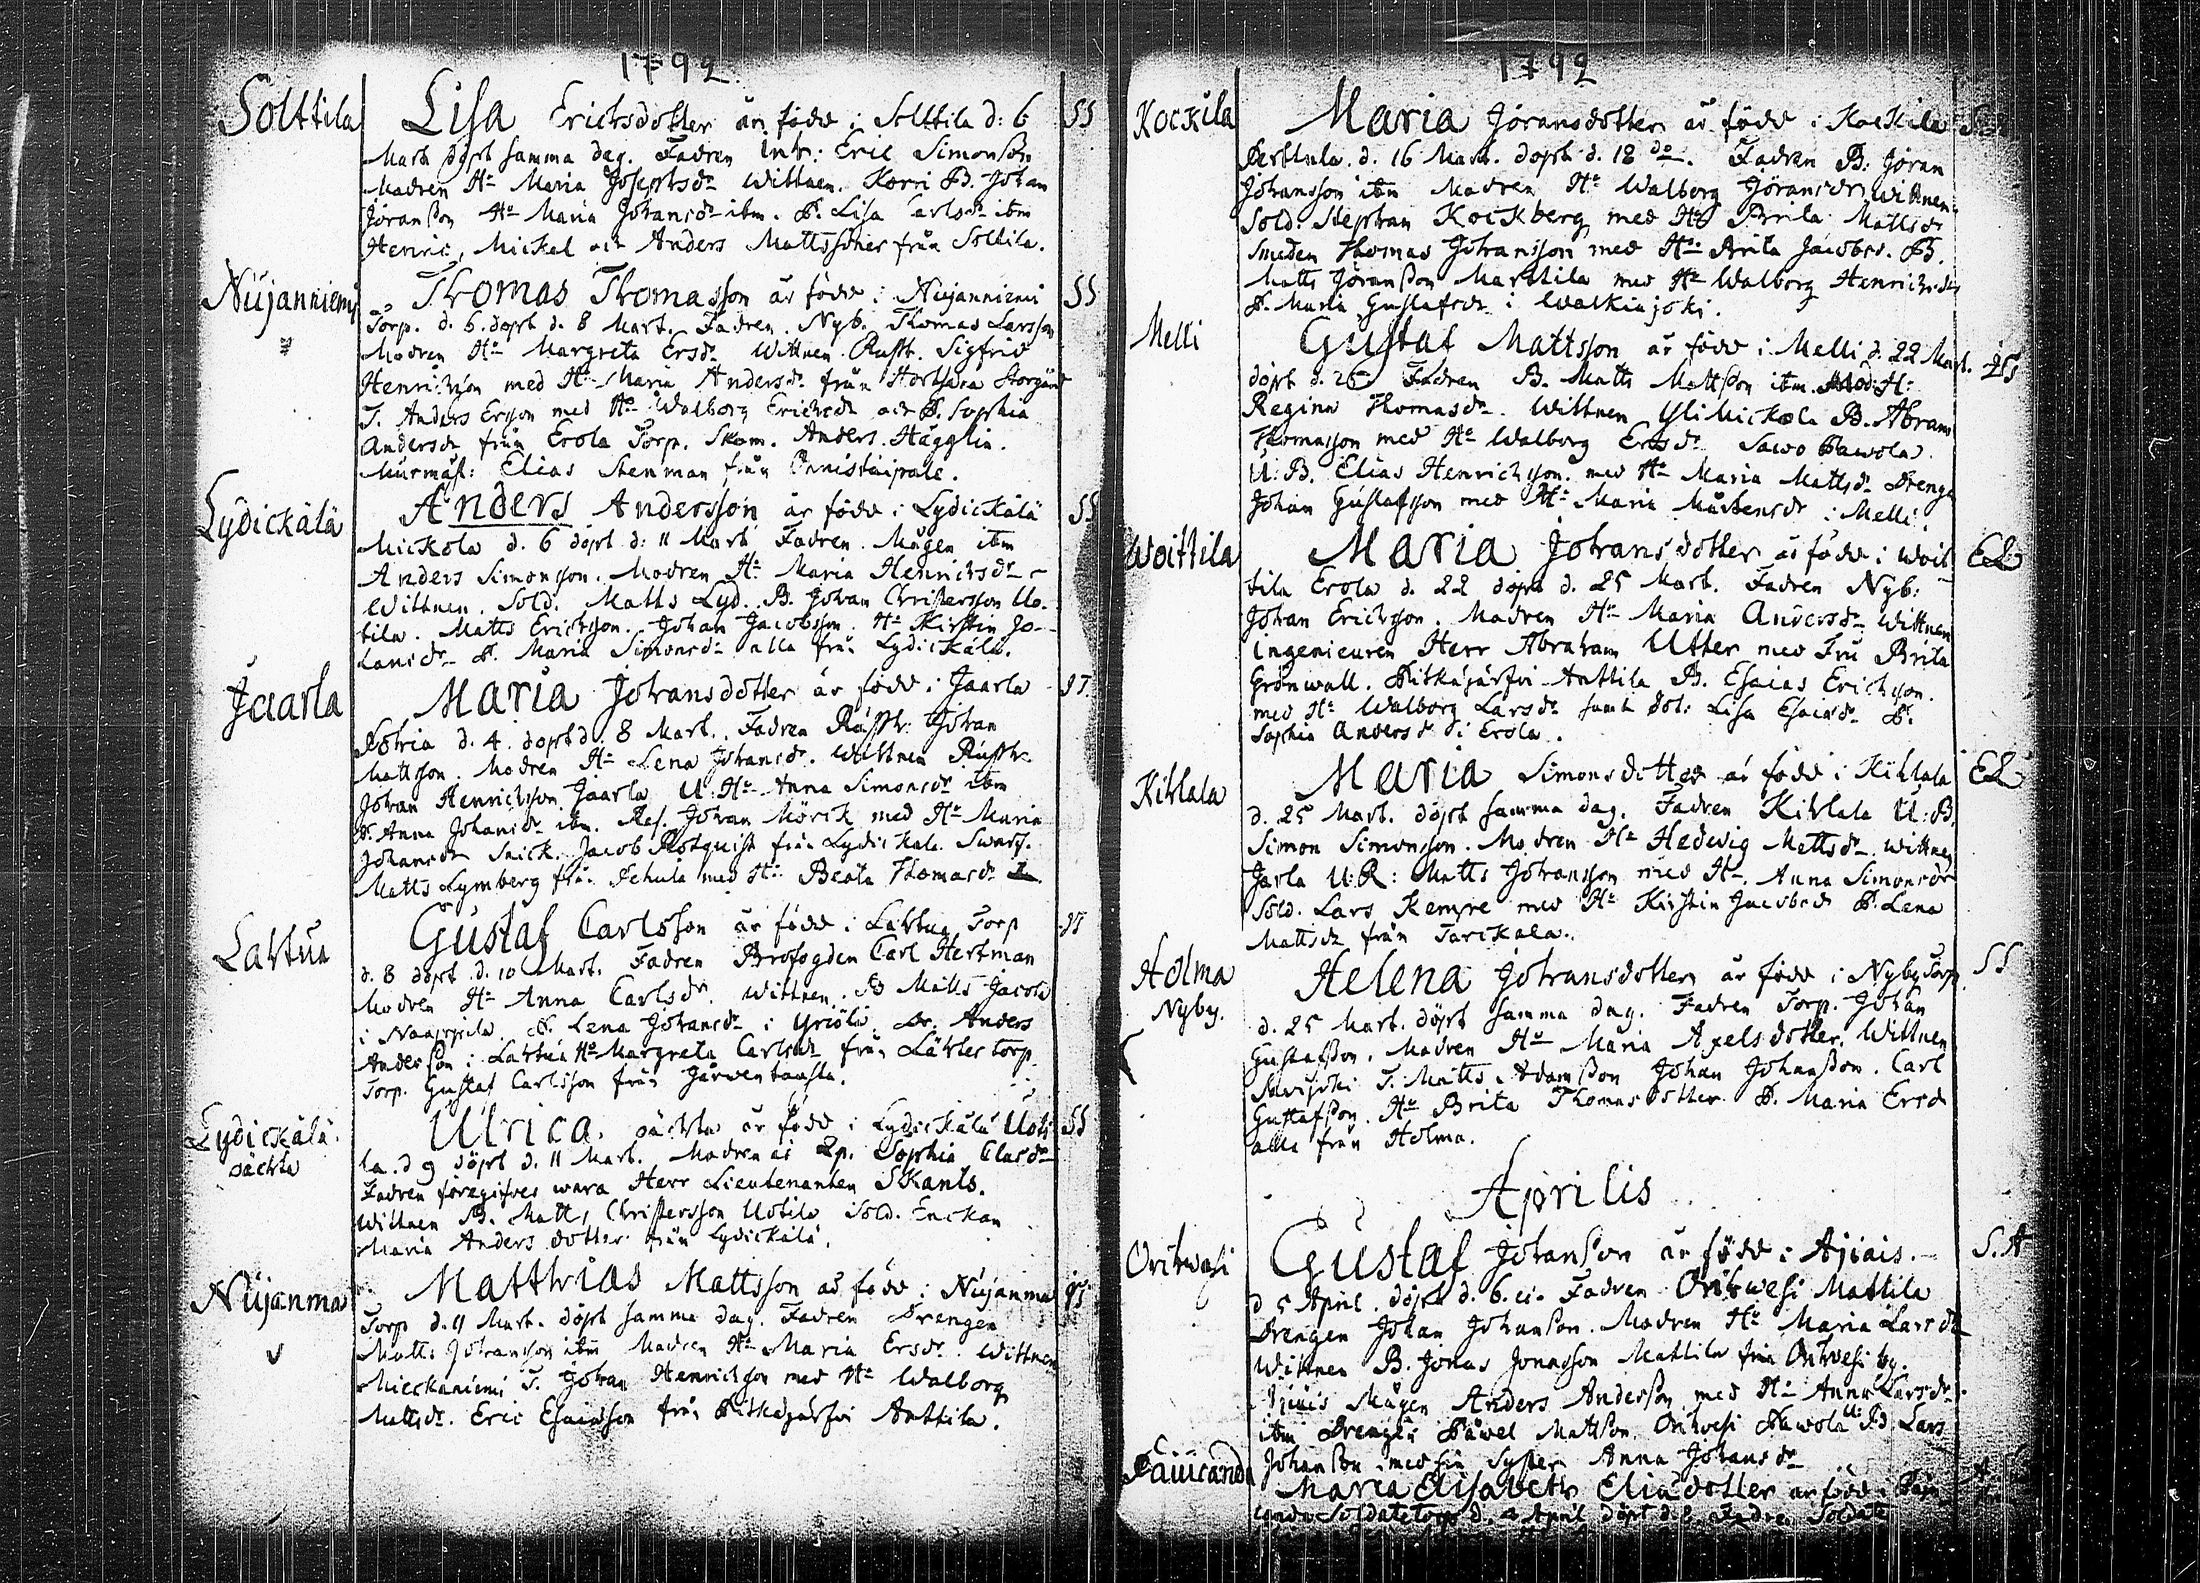 1792
Solttila Lisa Erichsdotter är född i Solttila d: 6 SS
Mart döpt samma dag. Fadren Inh: Eric Simonsson
Madren Hu Maria Josephsdr Wittnen. Korri B. Johan
Jöransson Hu Maria Johansdr ibm. P. Lisa Carlsdr ibm
Henric, Mickel och Anders Mattssöner från Solttila.
Nüjanniemi Thomas Thomasson är född i Nüjanniemi SS
Torp. d. 6. döpt d. 8 Mart. Fadren. Nyb. Thomas Larsson
Modren Hu Margreta Ersdr Wittnen. Rusth. Sigfrid
Henrichson med Hu Maria Andersdr från Storgård
T. Anders Ersson med Hu Walborg Erichsdr och P. Sophia
Andersdr från Erola Torp. Skom. Anders Hägglin.
Murmäst: Elias Stenman från Onnistaipale.
Lydickälä Anders Andersson är född i Lydickälä SS
Mickola d. 6 döpt d: 11 Mart Fadren. Mågen ibm
Anders Simonsson. Modren Hu Maria Henrichsdr
Wittnen. Sold. Matts Lyd. B. Johan Christersson Uo-
tila. Matts Erichsson. Johan Jacobsson. Hu Kirstin Jo-
hansdr P. Maria Simonsdr alla från Lydickälä.
Jaarla Maria Johansdotter är född i Jaarla
d. 4. döpt d. 8 Mart. Fadren Rusth: Johan
Mattsson. Modren Hu Lena Johansdr. Wittnen Rusth.
Johan Henrichsson Jaarla U. Hu Anna Simonsdr ibm
P. Anna Johansdr ibm. Ref. Johan Mörck med Hu Maria
Johansdr Snick. Jacob Rotquist från Lydickälä. Swarf.
Matts Lymberg från med Hu Beata Thomasdr
Lahtua Gustaf Carlsson är född i Lahtua Torp
d. 8 döpt d. 10 Mart. Fadren Brofogden Carl Hertman
Modren Hu Anna Carlsdr. Wittnen. B Matts Jacobs
i Naappila P. Lena Johansdr i Yriölä. Dr. Anders
Andersson i Lahtua Hu Margreta Carlsdr från
Torp. Gustaf Carlsson från Järwentausta.
Lydickälä oächta Ulrica. oächta är född i Lydickälä Uoti SS
la. d 9 döpt d. 11 Mart. Modren är Lp. Sophia Clasdr
Fadren föregifves wara Herr Lieutenanten Skants.
Wittnen B. Matts Christersson Uotila Sold. Enckan
Maria Andersdotter från Lydickälä.
Nüjanmaa Matthias Mattsson är född i Nüjanmaa
Torp d. 11 Mart. döpt samma dag. Fadren Drengen
Matts Johansson ibm Modren Hu Maria Ersdr. Wittnen
Mieckaniemi T. Johan Henrichsson med Hu Walborg
Mattsdr. Eric Esaiasson från Pitkäjärfvi Anttila.
1792
Kockila Maria Jöransdotter är född i Kockila
Perttula. d. 16 Mart. döpt d. 18 do. Fadren B. Jöran
Johansson ibm Modren Hu Walborg Jöransdr Wittnen
Sold. Stephan Kockberg med Hu Brita Mattsdr
Smeden Thomas Johansson med Hu Brita Jacobsd. B.
Matts Jöransson Marttila med Hu Walborg Henrichsdr
P. Maria Gustafsdr i Walkiajoki.
Melli Gustaf Mattsson är född i Melli d. 22 Mart.
döpt d. 25 Fadren B. Matts Mattsson ibm Mod: H:
Regina Thomasdr. Wittnen Yli Mickola B. Abram
Thomasson med Hu Walborg Ersdr Sawo Pawola
U. B. Elias Henrichsson med Hu Maria Mattsdr Drengen
Johan Gustafsson med Hu Maria Mårtensdr i Melli.
Woittila Maria Johansdotter är född i Woit- EL
tila Erola d. 22 döpt d. 25 Mart. Fadren Nyb:
Johan Erichsson. Modren Hu Maria Andersdr Wittnen
Ingenieuren Herr Abraham Utter med Fru Brita
Grönwall. Pitkäjärfvi Anttila B. Esaias Erichsson.
med Hu Walborg Larsdr samt dot: Lisa Esaiasdr P.
Sophia Andersdr i Erola.
Kihlala Maria Simonsdotter är född i Kihlala EL
d. 25 Mart. döpt samma dag. Fadren Kihlala U: B.
Simon Simonsson. Modren Hu Hedevig Mattsdr Wittnen
Jarla U: R: Matts Johansson med Hu. Anna Simonsdr
Sold. Lars Kempe med Hu Kirstin Jacobsdr P. Lena
Mattsdr från Tarickala.
Holma Nyby. Helena Johansdotter är född i Nyby Torp SS
d. 25 Mart. döpt samma dag. Fadren Torp. Johan
Gustafsson. Madren Hu Maria Axelsdotter. Wittnen
Savijoki T. Matts Adamsson Johan Johansson. Carl
Gustafsson. Hu Brita Thomasdotter P. Maria Ersdr
alla från Holma.
Aprilis
Orihwesi Gustaf Johansson är född i Ajiais. S.A
d 5 April. döpt d. 6. ei. Fadren Orihwesi Mattila
Drengen Johan Johansson. Modren Hu Maria Larsdr
Wittnen B. Jonas Jonasson Mattila från Orihwesi by.
Ajiais Mågen Anders Andersson med Hu Anna Larsdr
ibm Drengen Påwel Mattsson. Orihvesi Pawola U: B Lars
Johansson med sin Syster Anna Johansdr
Maria Elisabeth Eliaedotter är född i
Soldatetorp d. 4 April döpt d. 8 Fadren Soldate